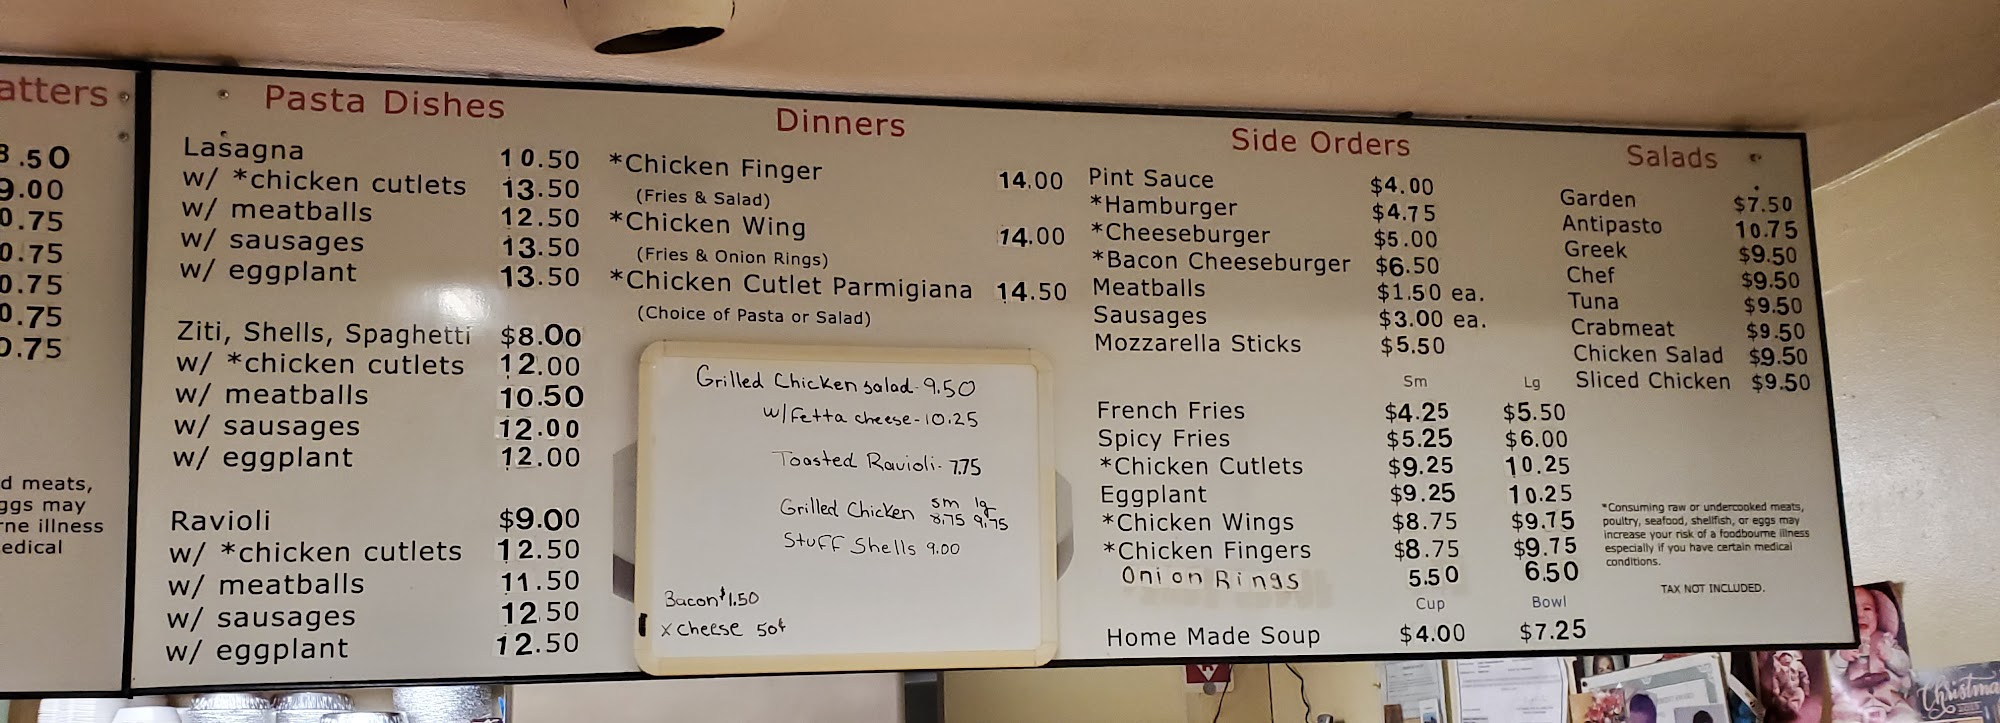 atters
.50
9.00
0.75
0.75
0.75
0.75
0.75
d meats,
ggs may
rne illness
edical
Pasta Dishes
Lasagna 10.50
w/ *chicken cutlets 13.50
w/ meatballs 12.50
w/ sausages 13.50
w/ eggplant 13.50
Ziti, Shells, Spaghetti $8.00
w/ *chicken cutlets 12.00
w/ meatballs 10.50
w/ sausages 12.00
w/ eggplant 12.00
Ravioli $9.00
w/ *chicken cutlets 12.50
w/ meatballs 11.50
w/ sausages 12.50
w/ eggplant 12.50
Dinners
*Chicken Finger 14.00
(Fries & Salad)
*Chicken Wing 14.00
(Fries & Onion Rings)
*Chicken Cutlet Parmigiana 14.50
(Choice of Pasta or Salad)
Grilled Chicken salad - 9.50
w/ Fetta cheese - 10.25
Toasted Ravioli - 7.75
sm lg
Grilled Chicken 8.75 9.75
Stuff Shells 9.00
Bacon $1.50
x cheese 50¢
Side Orders
Pint Sauce $4.00
*Hamburger $4.75
*Cheeseburger $5.00
*Bacon Cheeseburger $6.50
Meatballs $1.50 ea.
Sausages $3.00 ea.
Mozzarella Sticks $5.50
Sm Lg
French Fries $4.25 $5.50
Spicy Fries $5.25 $6.00
*Chicken Cutlets $9.25 10.25
Eggplant $9.25 10.25
*Chicken Wings $8.75 $9.75
*Chicken Fingers $8.75 $9.75
Onion Rings 5.50 6.50
Cup Bowl
Home Made Soup $4.00 $7.25
Salads
Garden $7.50
Antipasto 10.75
Greek $9.50
Chef $9.50
Tuna $9.50
Crabmeat $9.50
Chicken Salad $9.50
Sliced Chicken $9.50
*Consuming raw or undercooked meats,
poultry, seafood, shellfish, or eggs may
increase your risk of a foodbourne illness
especially if you have certain medical
conditions.
TAX NOT INCLUDED.
Christma
2015